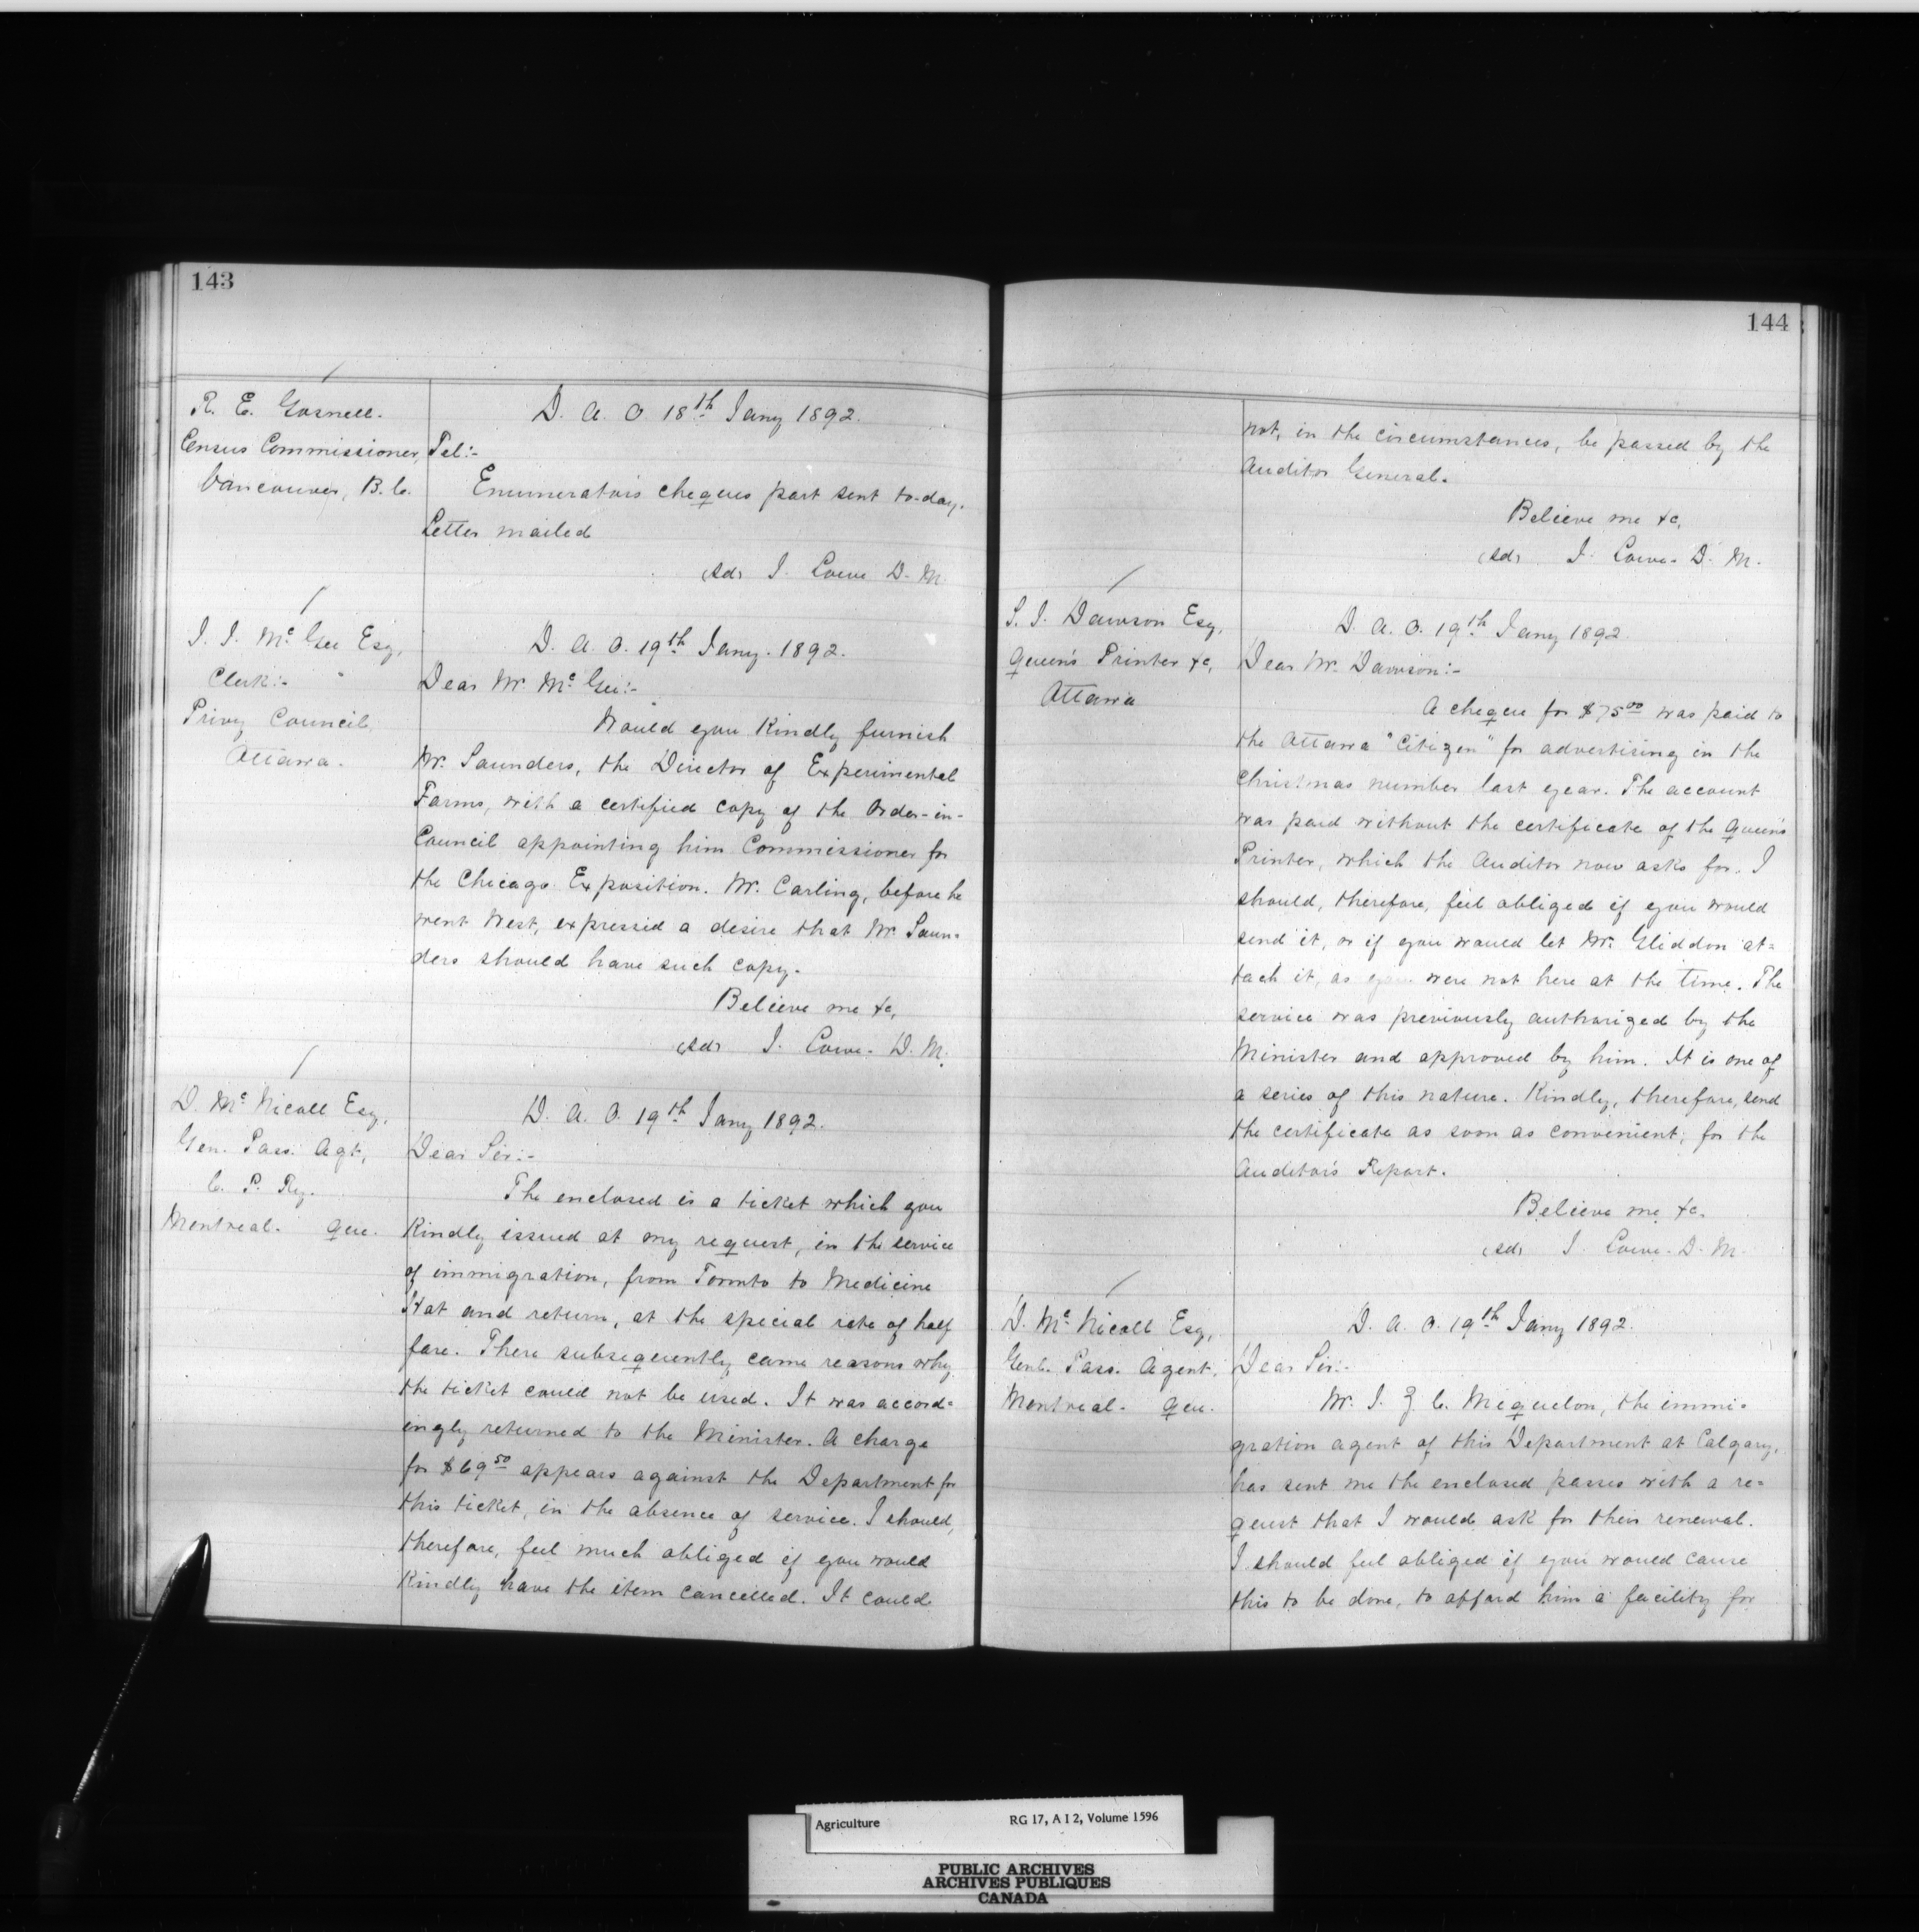 143
R. E. Gosnell.
Census Commissioner,
Vancouver, B.C.
D. A. O 18th Jany 1892.
Tel:-
Enumerators cheques part sent to-day.
Letter mailed
(sd) J. Lowe D. M.
J. J. McGee Esq,
Clerk:-
Privy Council,
Ottawa.
D. A. O. 19th Jany. 1892.
Dear Mr. McGee:-
Would you kindly furnish
Mr. Saunders, the Director of Experimental
Farms, with a certified copy of the Order-in-
Council appointing him Commissioner for
the Chicago Exposition. Mr. Carling, before he
went West, expressed a desire that Mr. Saun-
ders should have such copy.
Believe me &c,
(sd) J. Lowe. D. M.
D. McNicoll Esq,
Gen. Pass. Agt,
C. P. Ry.
Montreal. Que.
D. A. O. 19th Jany 1892.
Dear Sir:-
The enclosed is a ticket which you
kindly issued at my request, in the service
of immigration, from Toronto to Medicine
Hat and return, at the special rate of half
fare. There subsequently came reasons why
the ticket could not be used. It was accord-
ingly returned to the Minister. A charge
for $69.50 appears against the Department for
this ticket, in the absence of service. I should,
therefore, feel much obliged if you would
kindly have the item cancelled. It could
144
not, in the circumstances, be passed by the
Auditor General.
Believe me &c,
(sd) J. Lowe. D. M.
S. J. Dawson Esq,
Queen's Printer &c,
Ottawa
D. A. O. 19th Jany 1892.
Dear Mr. Dawson:-
A cheque for $75.00 was paid to
the Ottawa "Citizen" for advertising in the
Christmas number last year. The account
was paid without the certificate of the Queen's
Printer, which the Auditor now asks for. I
should, therefore, feel obliged if you would
send it, or if you would let Mr. Gliddon at-
tach it, as you were not here at the time. The
service was previously authorized by the
Minister and approved by him. It is one of
a series of this nature. Kindly, therefore, send
the certificate as soon as convenient, for the
Auditor's Report.
Believe me &c.
(sd) J. Lowe. D. M.
D. McNicoll Esq,
Genl. Pass. Agent,
Montreal. Que.
D. A. O. 19th Jany 1892.
Dear Sir:-
Mr. J. Z. C. Miquelon, the immi-
gration agent of this Department at Calgary,
has sent me the enclosed passes with a re-
quest that I would ask for their renewal.
I should feel obliged if you would cause
this to be done, to afford him a facility for
Agriculture RG 17, A I 2, Volume 1596
PUBLIC ARCHIVES
ARCHIVES PUBLIQUES
CANADA